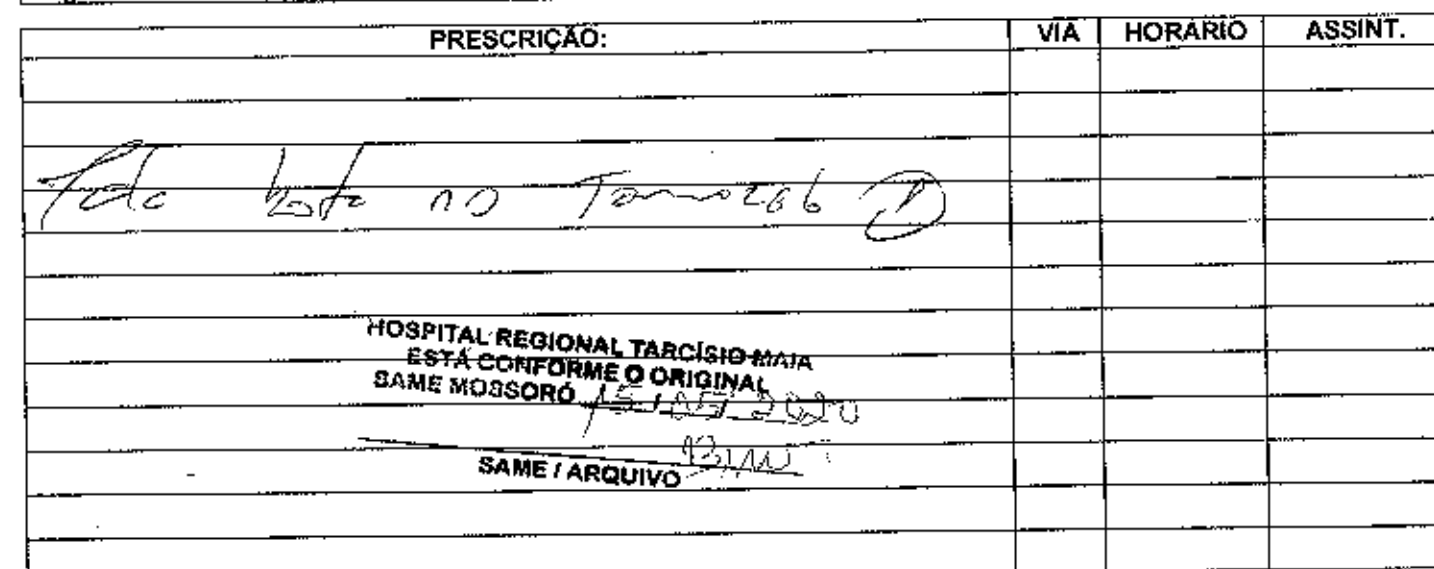 PRESCRIÇÃO: VIA HORÁRIO ASSINT.
Tala bota no Tornozelo D
HOSPITAL REGIONAL TARCÍSIO MAIA
ESTÁ CONFORME O ORIGINAL
SAME MOSSORÓ 15/05/2020
SAME / ARQUIVO